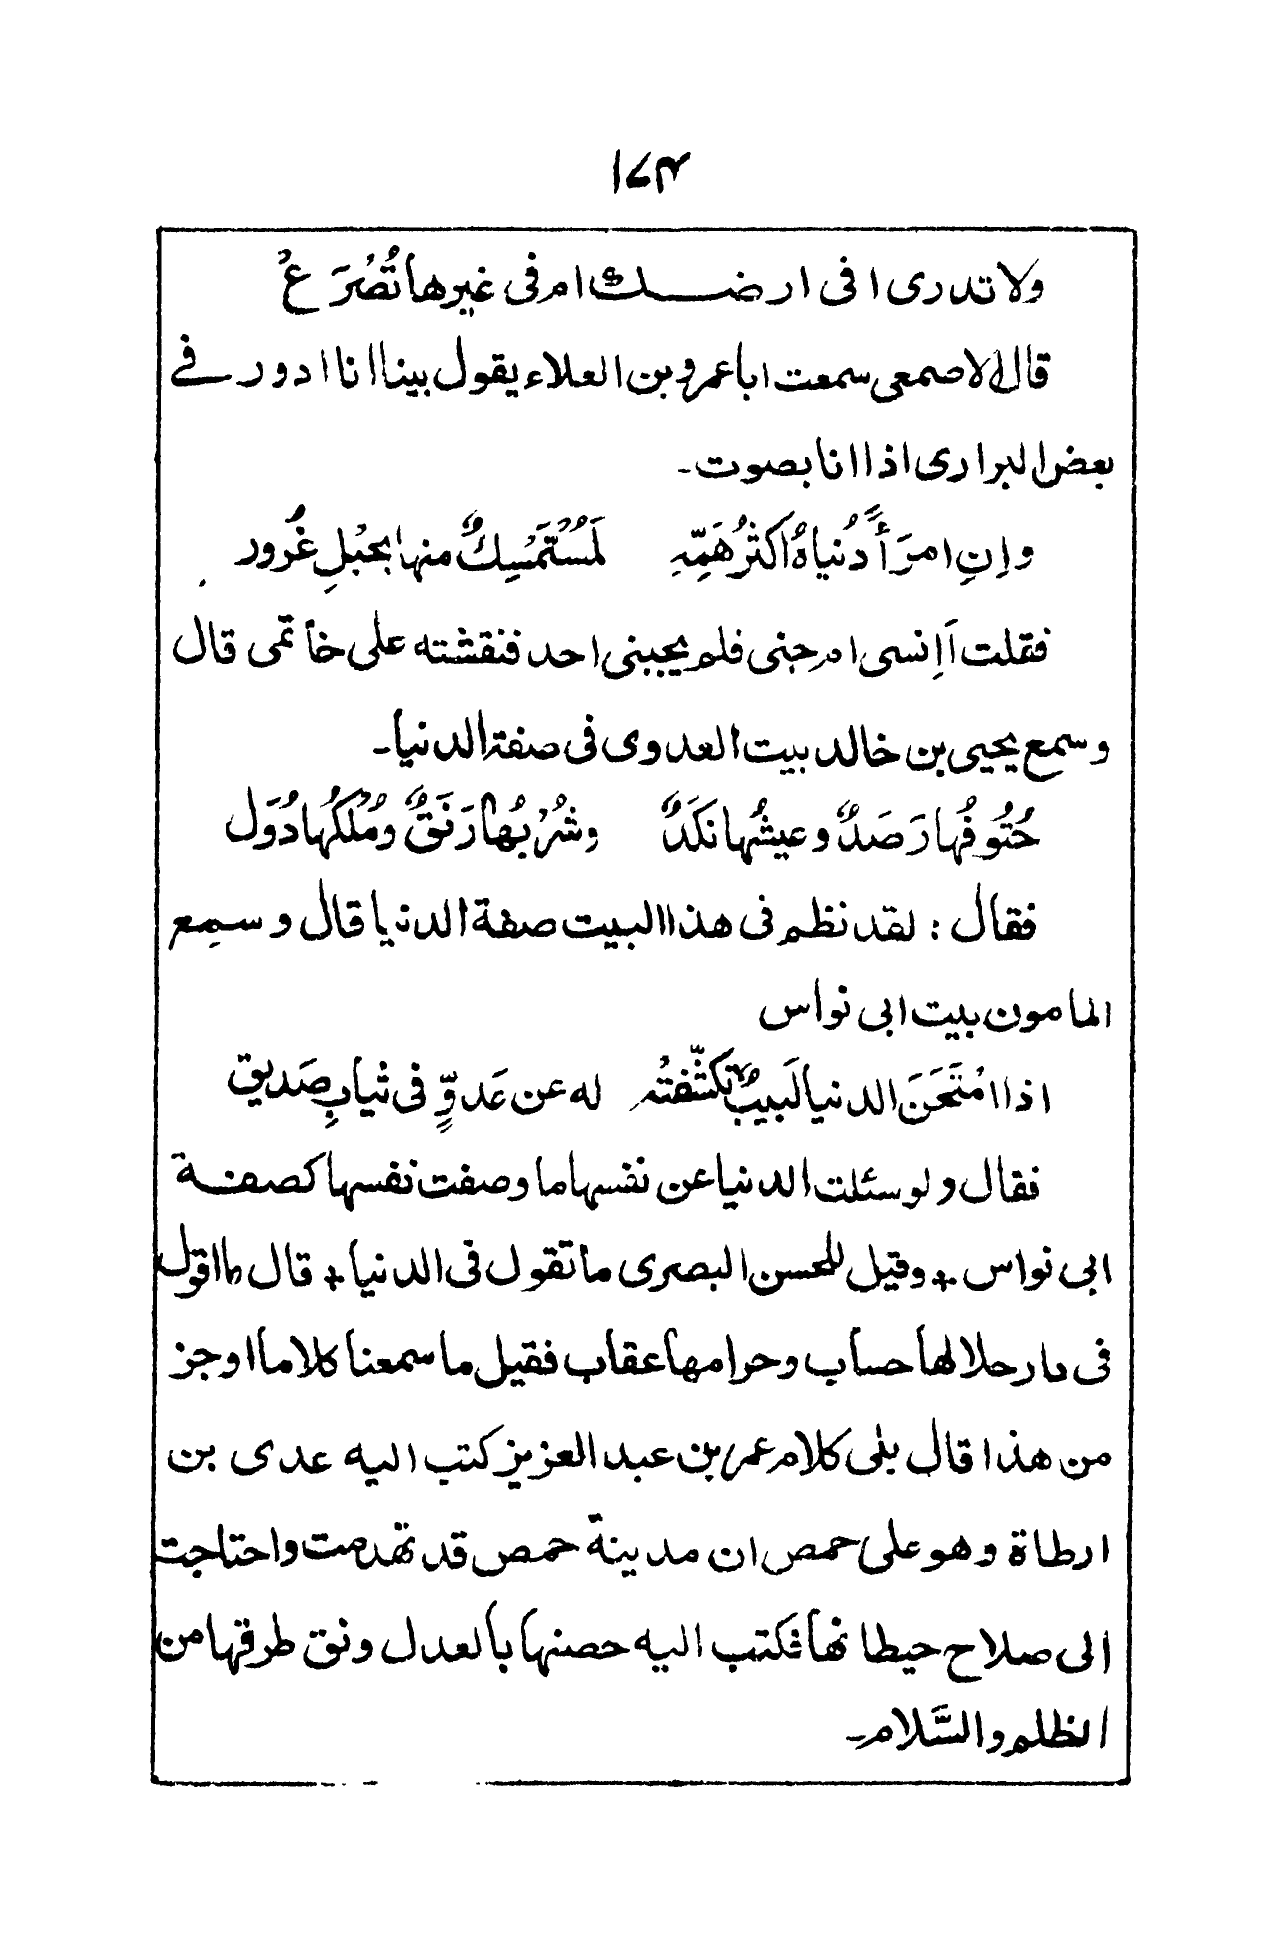 ۱۷۴
ولا تدرى افى ارضك ام فى غيرها تُصْرَعُ
قال الاصمعى سمعت ابا عمرو بن العلاء يقول بينا انا ادور فے
بعض البرارى اذا انا بصوت۔
وانِ امرَأً دُنياهُ اكثرُ هَمِّهٖ لَمُسْتَمْسِكٌ منها بحَبْلِ غُرور
فقلت أاِنسى ام جنى فلم يجبنى احد فنقشته على خاتمى قال
وسمع يحيى بن خالد بيت العدوى فى صفة الدنيا۔
حُتُوفُها رَصَدٌ وعيشُها نَكَدٌ وشُرْبُها رَنَقٌ ومُلْكُها دُوَل
فقال : لقد نظم فى هذا البيت صفة الدنيا قال وسمِع
المامون بيت ابى نواس
اذا امْتَحَنَ الدنيا لَبيبٌ تكَشَّفتْ له عن عَدوٍّ فى ثيابِ صَديق
فقال ولو سئلت الدنيا عن نفسها ما وصفت نفسها كصفة
ابى نواس + وقيل للحسن البصرى ما تقول فى الدنيا + قال ما اقول
فى دار حلالها حساب وحرامها عقاب فقيل ما سمعنا كلاما اوجز
من هذا قال بلى كلام عمر بن عبد العزيز كتب اليه عدى بن
ارطاة وهو على حمص ان مدينة حمص قد تهدمت واحتاجت
الى صلاح حيطانها فكتب اليه حصنها بالعدل ونق طرقها من
الظلم والسَّلام۔